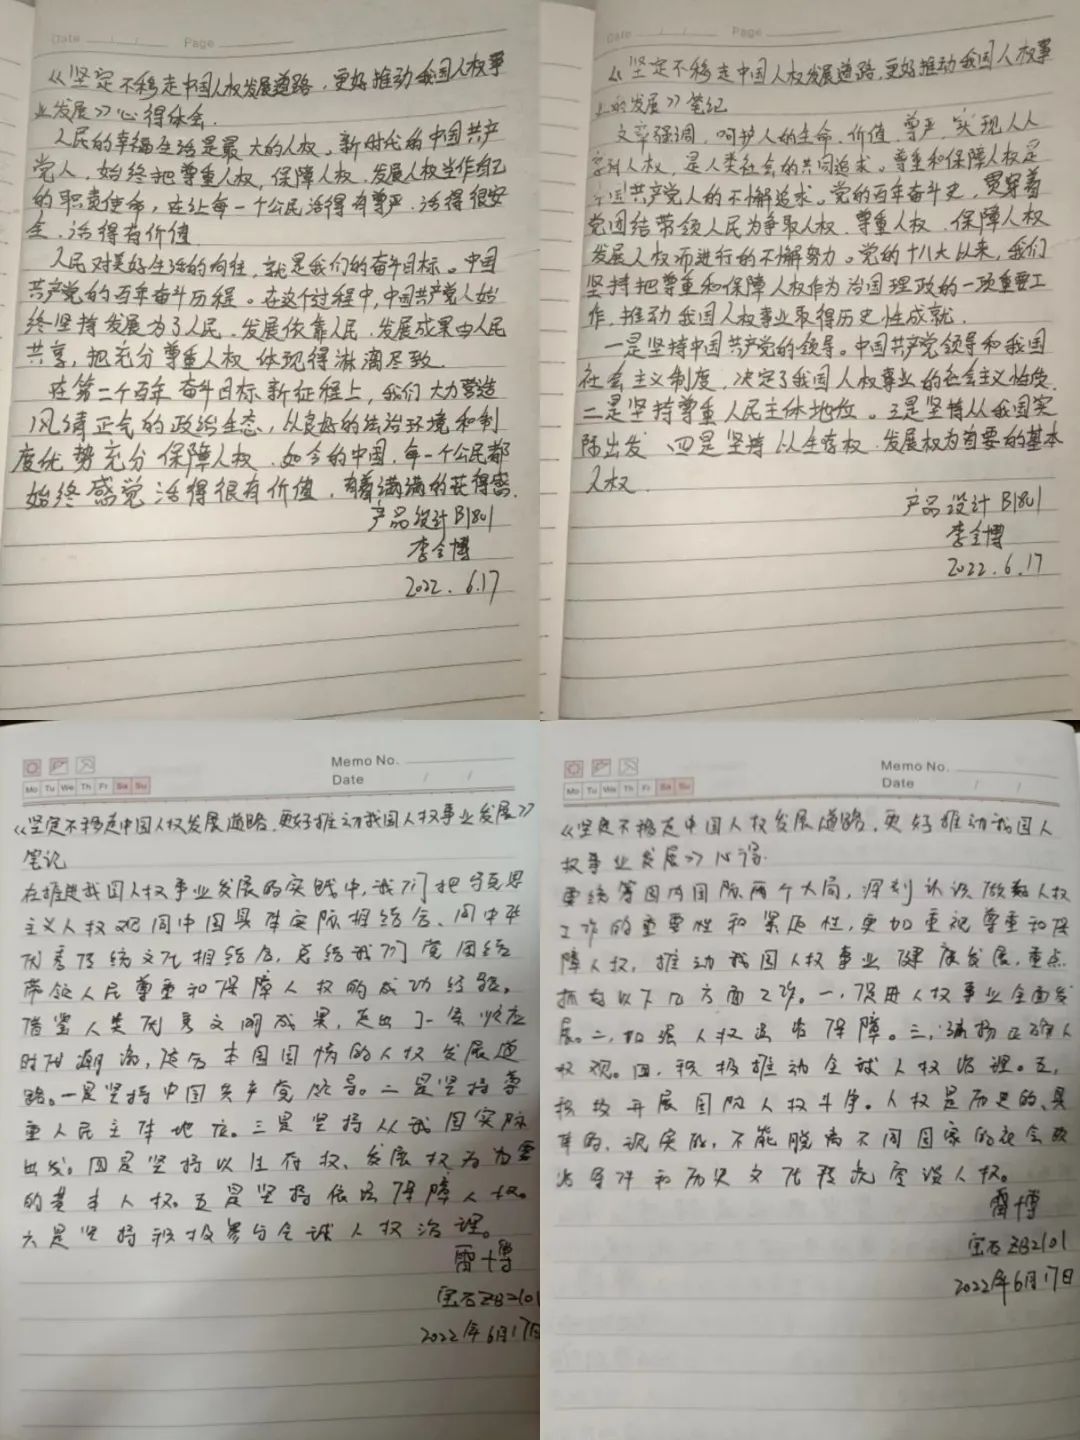 Date / / Page
《坚定不移走中国人权发展道路，更好推动我国人权事
业发展》心得体会.
人民的幸福生活是最大的人权。新时代的中国共产
党人，始终把尊重人权，保障人权、发展人权当作自己
的职责使命，在让每一个公民活得有尊严、活得很安
全、活得有价值
人民对美好生活的向往，就是我们的奋斗目标。中国
共产党的百年奋斗历程。在这个过程中，中国共产党人始
终坚持发展为了人民、发展依靠人民、发展成果由人民
共享，把充分尊重人权体现得淋漓尽致.
在第二个百年奋斗目标新征程上，我们大力营造
风清正气的政治生态，从良好的法治环境和制
度优势充分保障人权、如今的中国，每一个公民都
始终感觉活得很有价值，有着满满的获得感.
产品设计B1801
李全博
2022.6.17
Date / / Page
《坚定不移走中国人权发展道路，更好推动我国人权事
业的发展》笔纪
文章强调，呵护人的生命、价值、尊严，实现人人
享有人权，是人类社会的共同追求。尊重和保障人权是
中国共产党人的不懈追求。党的百年奋斗史，贯穿着
党团结带领人民为争取人权、尊重人权、保障人权
发展人权而进行的不懈努力。党的十八大以来，我们
坚持把尊重和保障人权作为治国理政的一项重要工
作，推动我国人权事业取得历史性成就.
一是坚持中国共产党的领导。中国共产党领导和我国
社会主义制度，决定了我国人权事业的社会主义性质.
二是坚持尊重人民主体地位。三是坚持从我国实
际出发、四是坚持以生存权、发展权为首要的基本
人权
产品设计B1801
李全博
2022.6.17
Memo No.
Mo Tu We Th Fr Sa Su Date / /
《坚定不移走中国人权发展道路，更好推动我国人权事业发展》
笔记
在推进我国人权事业发展的实践中，我们把马克思
主义人权观同中国具体实际相结合、同中华
优秀传统文化相结合，总结我们党团结
带领人民尊重和保障人权的成功经验。
借鉴人类优秀文明成果，走出了一条顺应
时代潮流，适合本国国情的人权发展道
路。一是坚持中国共产党领导。二是坚持尊
重人民主体地位。三是坚持从我国实际
出发。四是坚持以生存权、发展权为为要
的基本人权。五是坚持依法保障人权。
六是坚持积极参与全球人权治理。
雷十博
宝石ZB2101
2022年6月17日
Memo No.
Mo Tu We Th Fr Sa Su Date / /
《坚定不移走中国人权发展道路，更好推动我国人
权事业发展》心得.
要统筹国内国际两个大局，深刻认识做好人权
工作的重要性和紧迫性，更加重视尊重和保
障人权，推动我国人权事业健康发展，重点
抓好以下几方面工作。一，促进人权事业全面发
展。二，加强人权法治保障。三，弘扬正确人
权观。四，积极推动全球人权治理。五，
积极开展国际人权斗争。人权是历史的、具
体的、现实的，不能脱离不同国家的社会政
治条件和历史文化传统空谈人权。
雷十博
宝石ZB2101
2022年6月17日